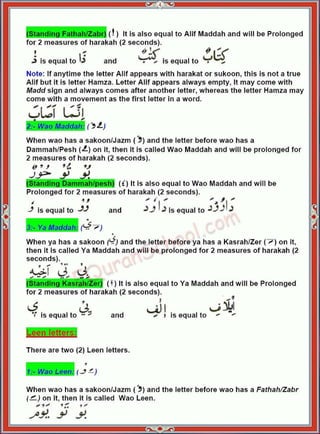 (Standing Fathah/Zabr) ( ٰ ) It is also equal to Alif Maddah and will be Prolonged
for 2 measures of harakah (2 seconds).
is equal to ذَا and كِتٰبٌ is equal to كِتَابٌ
Note: If anytime the letter Alif appears with harakat or sukoon, this is not a true
Alif but it is letter Hamza. Letter Alif appears always empty, It may come with
Madd sign and always comes after another letter, whereas the letter Hamza may
come with a movement as the first letter in a word.
إِنَّمَا أَصَابَ
2:- Wao Maddah:
When wao has a sakoon/Jazm ( ) and the letter before wao has a
Dammah/Pesh ( ُ ) on it, then it is called Wao Maddah and will be prolonged for
2 measures of harakah (2 seconds).
بُو تُو حُورٌ
(Standing Dammah/pesh) ( ) It is also equal to Wao Maddah and will be
Prolonged for 2 measures of harakah (2 seconds).
is equal to and is equal to
3:- Ya Maddah:
When ya has a sakoon ( ) and the letter before ya has a Kasrah/Zer ( ِ ) on it,
then it is called Ya Maddah and will be prolonged for 2 measures of harakah (2
seconds).
بِي تِي أَخِيهِ
(Standing Kasrah/Zer) ( ) It is also equal to Ya Maddah and will be Prolonged
for 2 measures of harakah (2 seconds).
is equal to and is equal to
Leen letters:
There are two (2) Leen letters.
1:- Wao Leen:
When wao has a sakoon/Jazm ( ) and the letter before wao has a Fathah/Zabr
( َ ) on it, then it is called Wao Leen.
بَو تَو يَوْمَ